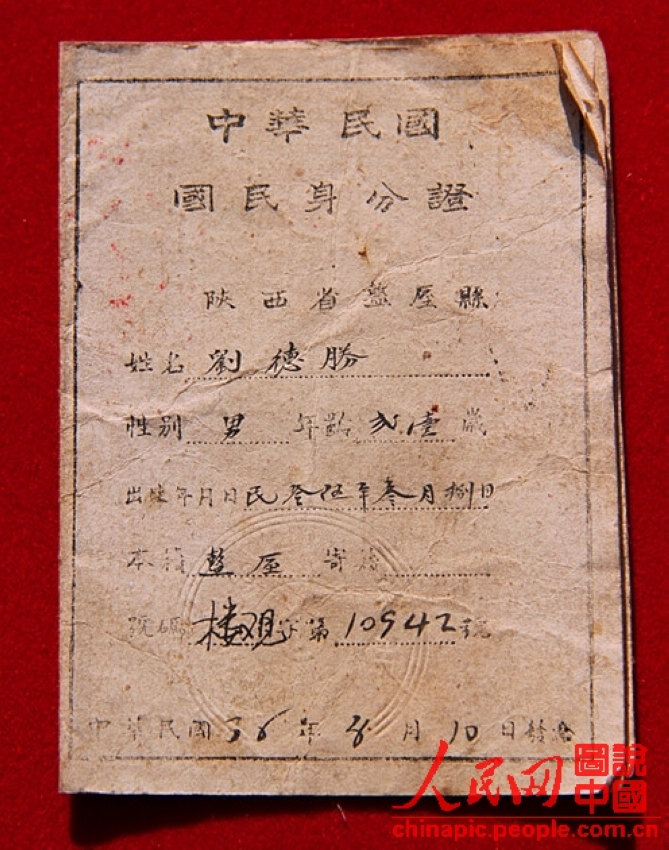 中華民國
國民身分證
陝西省盩厔縣
姓名 劉德勝
性別 男 年齡 弍壹 歲
出生年月日 民叁伍年叁月捌日
本籍 盩厔 寄籍
號碼 樓观字第 10942 號
中華民國 36 年 8 月 10 日發給
人民网 圖說中國
chinapic.people.com.cn